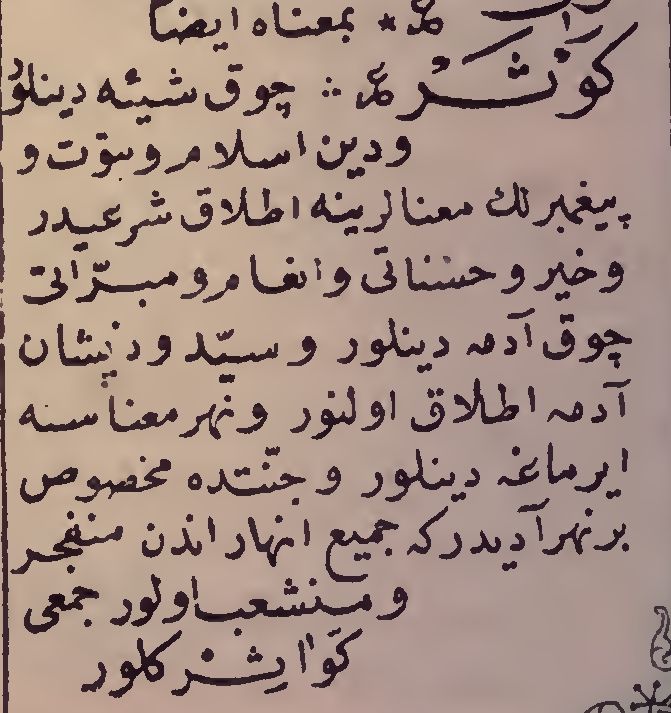 بمعناه ايضا
كَوْثَرْ ع ∴ چوق شیئه دینلوُ
ودین اسلامه ونبوّت و
پیغمبرلك معنالرینه اطلاق شرعیدر
وخیر وحسناتی وانعام ومبرّاتی
چوق آدمه دینلور و سیّد وذیشان
آدمه اطلاق اولنور ونهر معناسنه
ایرماغه دینلور وجنّتده مخصوص
برنهر آدیدركه جمیع انهار اندن منفجر
ومنشعب اولور جمعی
كَوَاثِرْ كلور